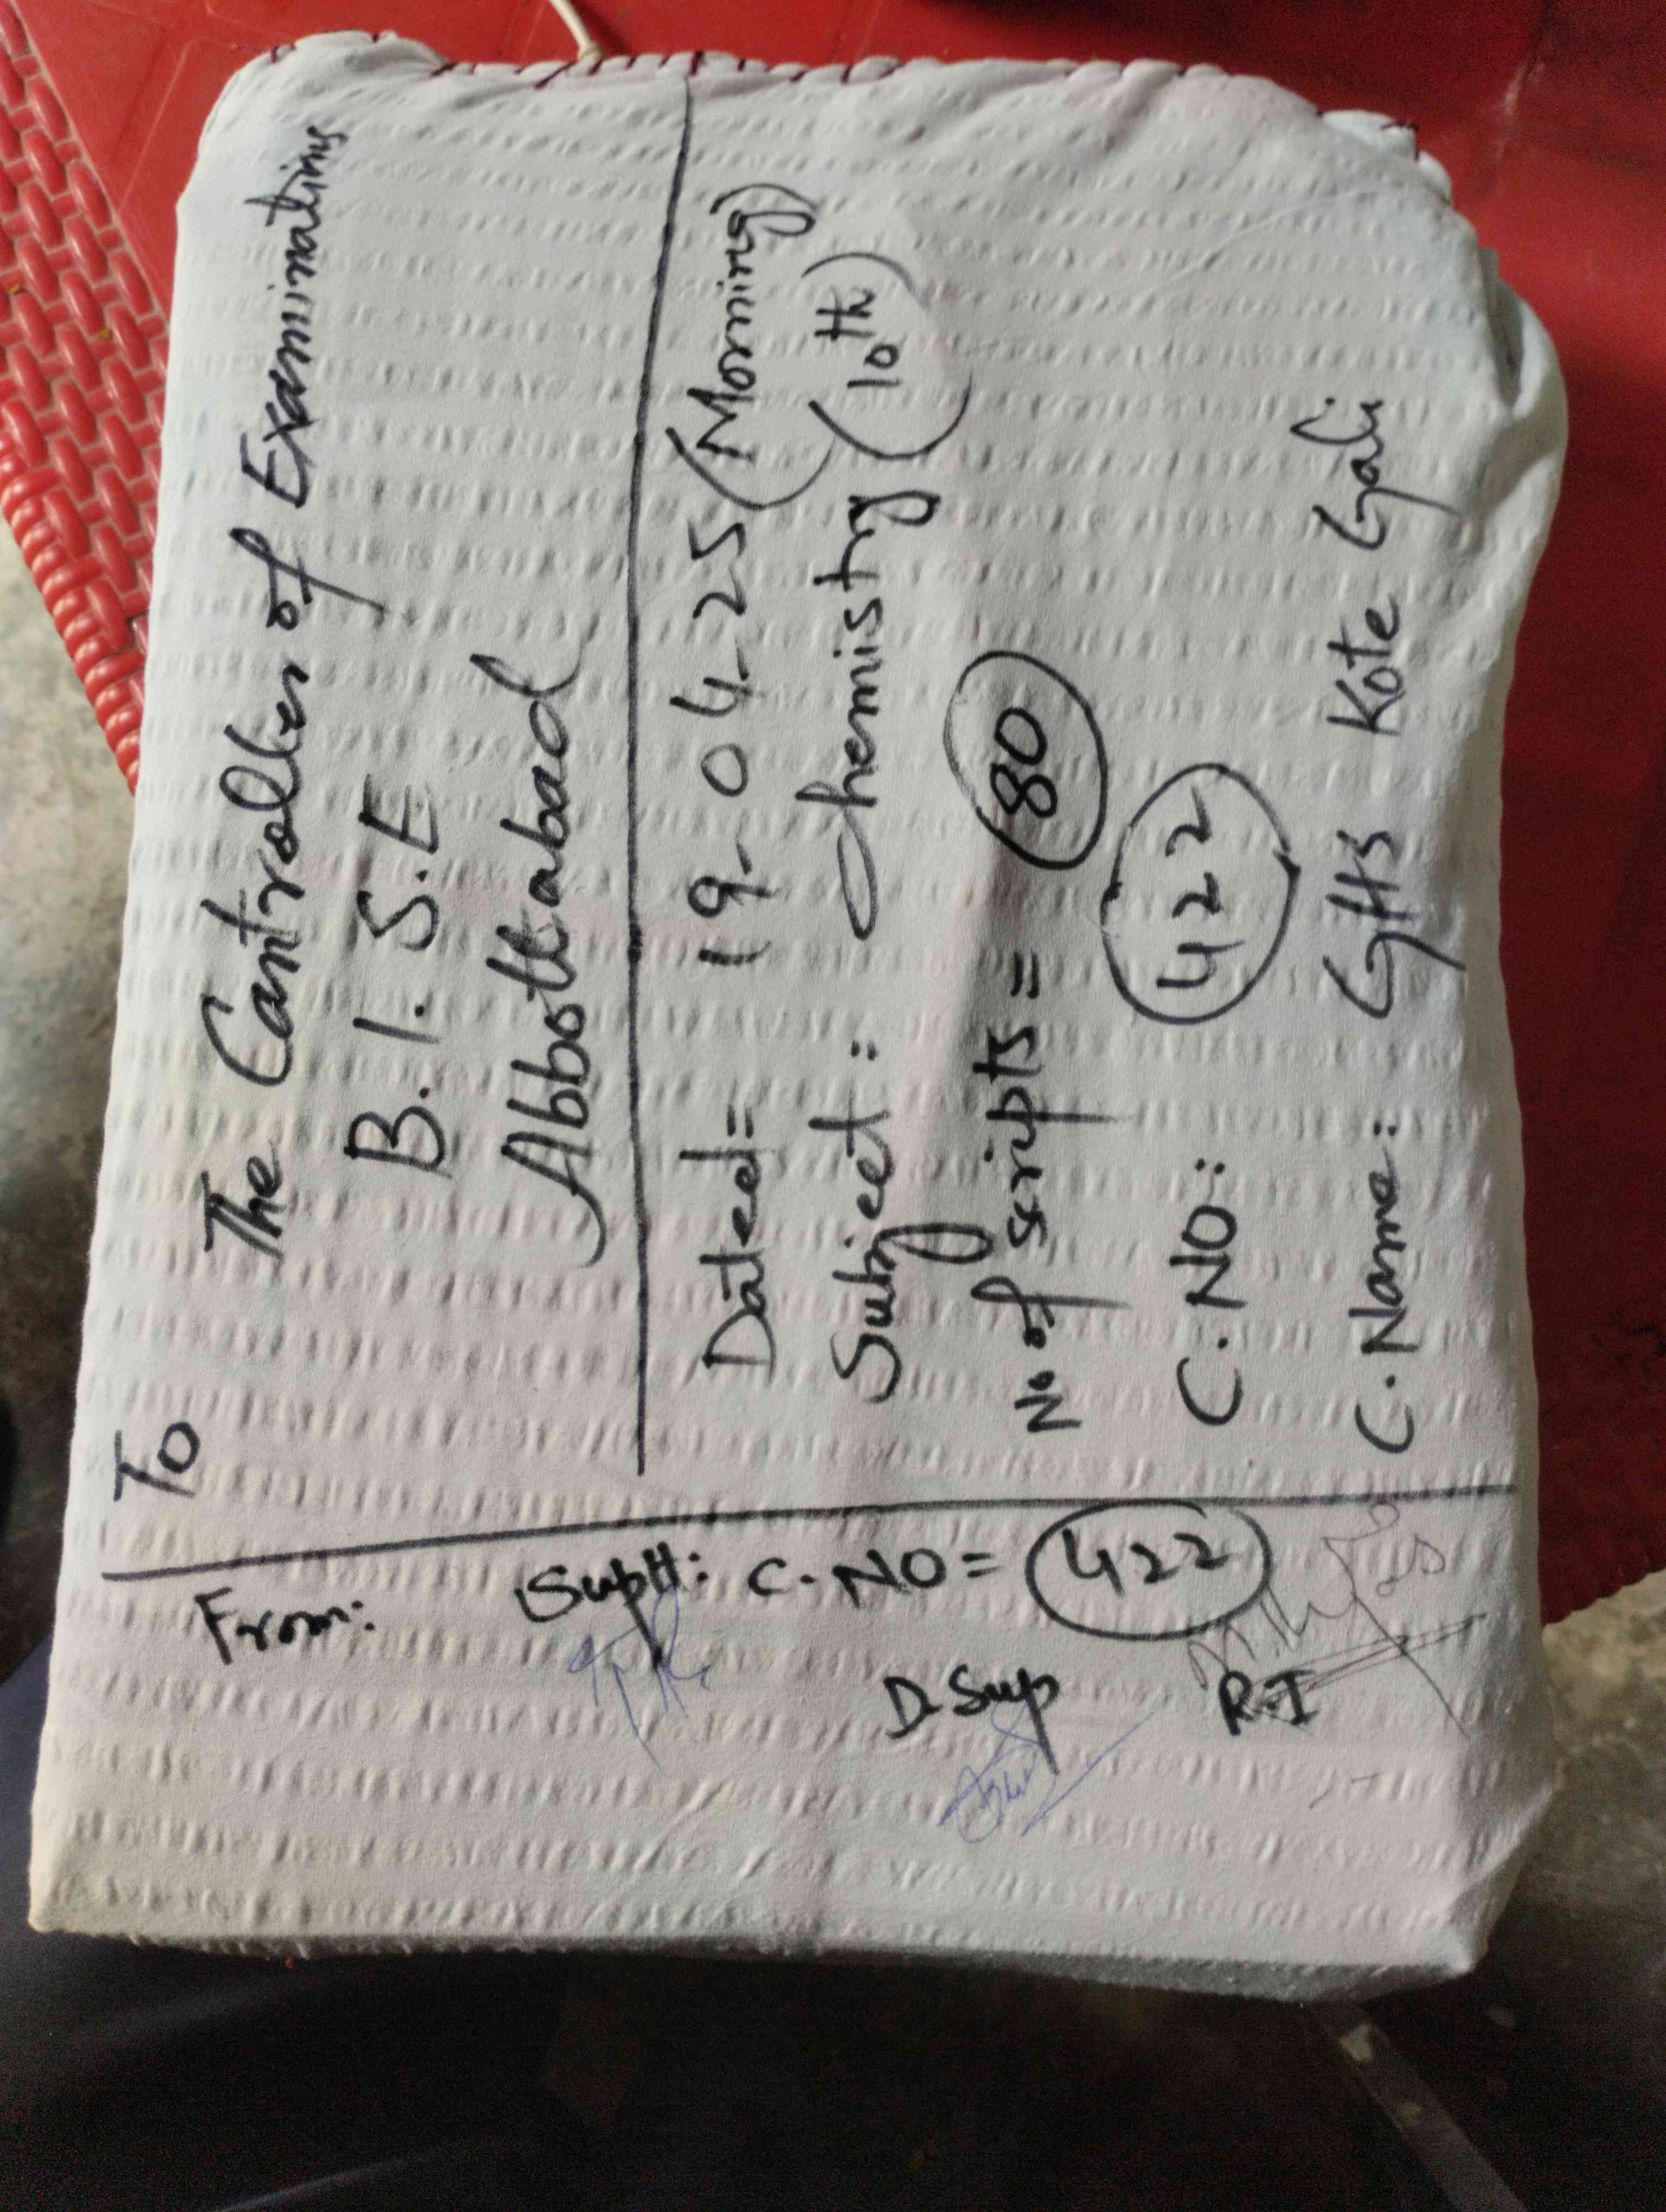 To
The Controller of Examinations
B.I.S.E
Abbottabad
Dated= 19-04-25 (Morning)
Subject: chemistry (10th)
No of scripts = 80
C.NO: 422
C.Name: GHS Kote Gali
From:
Suptt: C.NO= 422
D.Sup
R.I